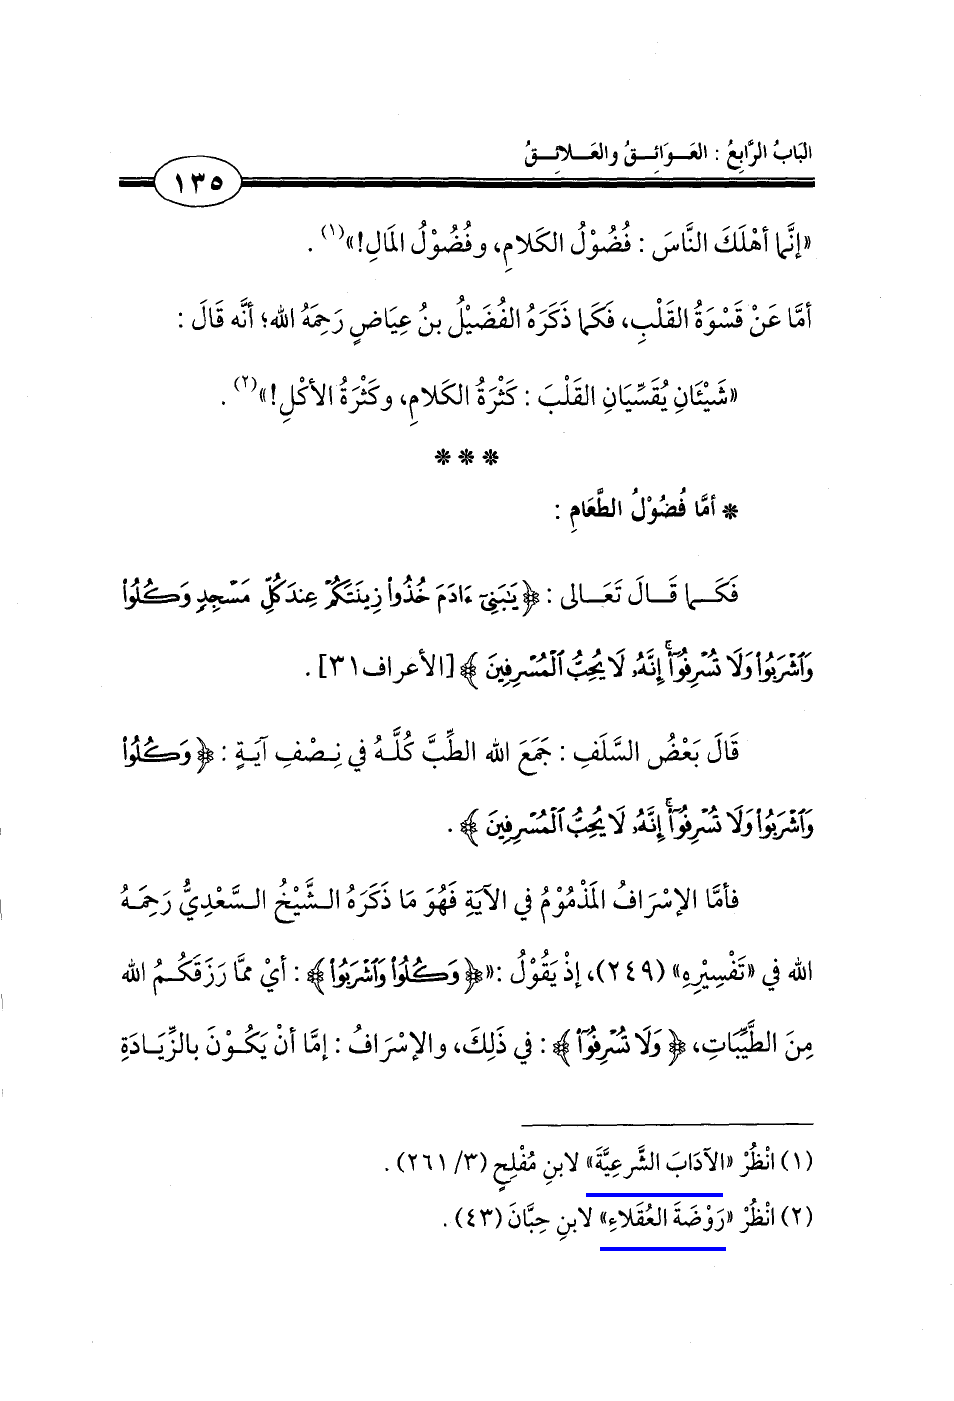 البَابُ الرَّابِعُ : العَـوَائِـقُ والعَـلائِـقُ
١٣٥
«إنَّما أهْلَكَ النَّاسَ : فُضُوْلُ الكَلامِ، وفُضُوْلُ المَالِ!»(١) .
أمَّا عَنْ قَسْوَةُ القَلْبِ، فَكَما ذَكَرَهُ الفُضَيْلُ بنُ عِيَاضٍ رَحِمَهُ الله؛ أنَّه قَالَ :
«شَيْئَانِ يُقَسِّيَانِ القَلْبَ : كَثْرَةُ الكَلامِ، وكَثْرَةُ الأكْلِ!»(٢) .
* * *
* أمَّا فُضُوْلُ الطَّعَامِ :
فَكَـما قَـالَ تَعَـالى : ﴿ يَٰبَنِيٓ ءَادَمَ خُذُوا۟ زِينَتَكُمْ عِندَ كُلِّ مَسْجِدٍ وَكُلُوا۟
وَٱشْرَبُوا۟ وَلَا تُسْرِفُوٓا۟ۚ إِنَّهُۥ لَا يُحِبُّ ٱلْمُسْرِفِينَ ﴾ [الأعراف٣١] .
قَالَ بَعْضُ السَّلَفِ : جَمَعَ الله الطِّبَّ كُلَّـهُ في نِـصْفِ آيَـةٍ : ﴿ وَكُلُوا۟
وَٱشْرَبُوا۟ وَلَا تُسْرِفُوٓا۟ۚ إِنَّهُۥ لَا يُحِبُّ ٱلْمُسْرِفِينَ ﴾ .
فأمَّا الإسْرَافُ المَذْمُوْمُ في الآيَةِ فَهُوَ مَا ذَكَرَهُ الـشَّيْخُ الـسَّعْدِيُّ رَحِمَـهُ
الله في «تَفْسِيْرِهِ» (٢٤٩)، إذْ يَقُوْلُ :«﴿ وَكُلُوا۟ وَٱشْرَبُوا۟ ﴾ : أيْ ممَّا رَزَقَكُـمُ الله
مِنَ الطَّيِّبَاتِ، ﴿ وَلَا تُسْرِفُوٓا۟ ﴾ : في ذَلِكَ، والإسْرَافُ : إمَّا أنْ يَكُـوْنَ بالـزِّيَـادَةِ
(١) انْظُرْ «الآدَابَ الشَّرعِيَّةَ» لابنِ مُفْلِحٍ (٣/ ٢٦١) .
(٢) انْظُرْ «رَوْضَةَ العُقَلاءِ» لابنِ حِبَّانَ (٤٣) .